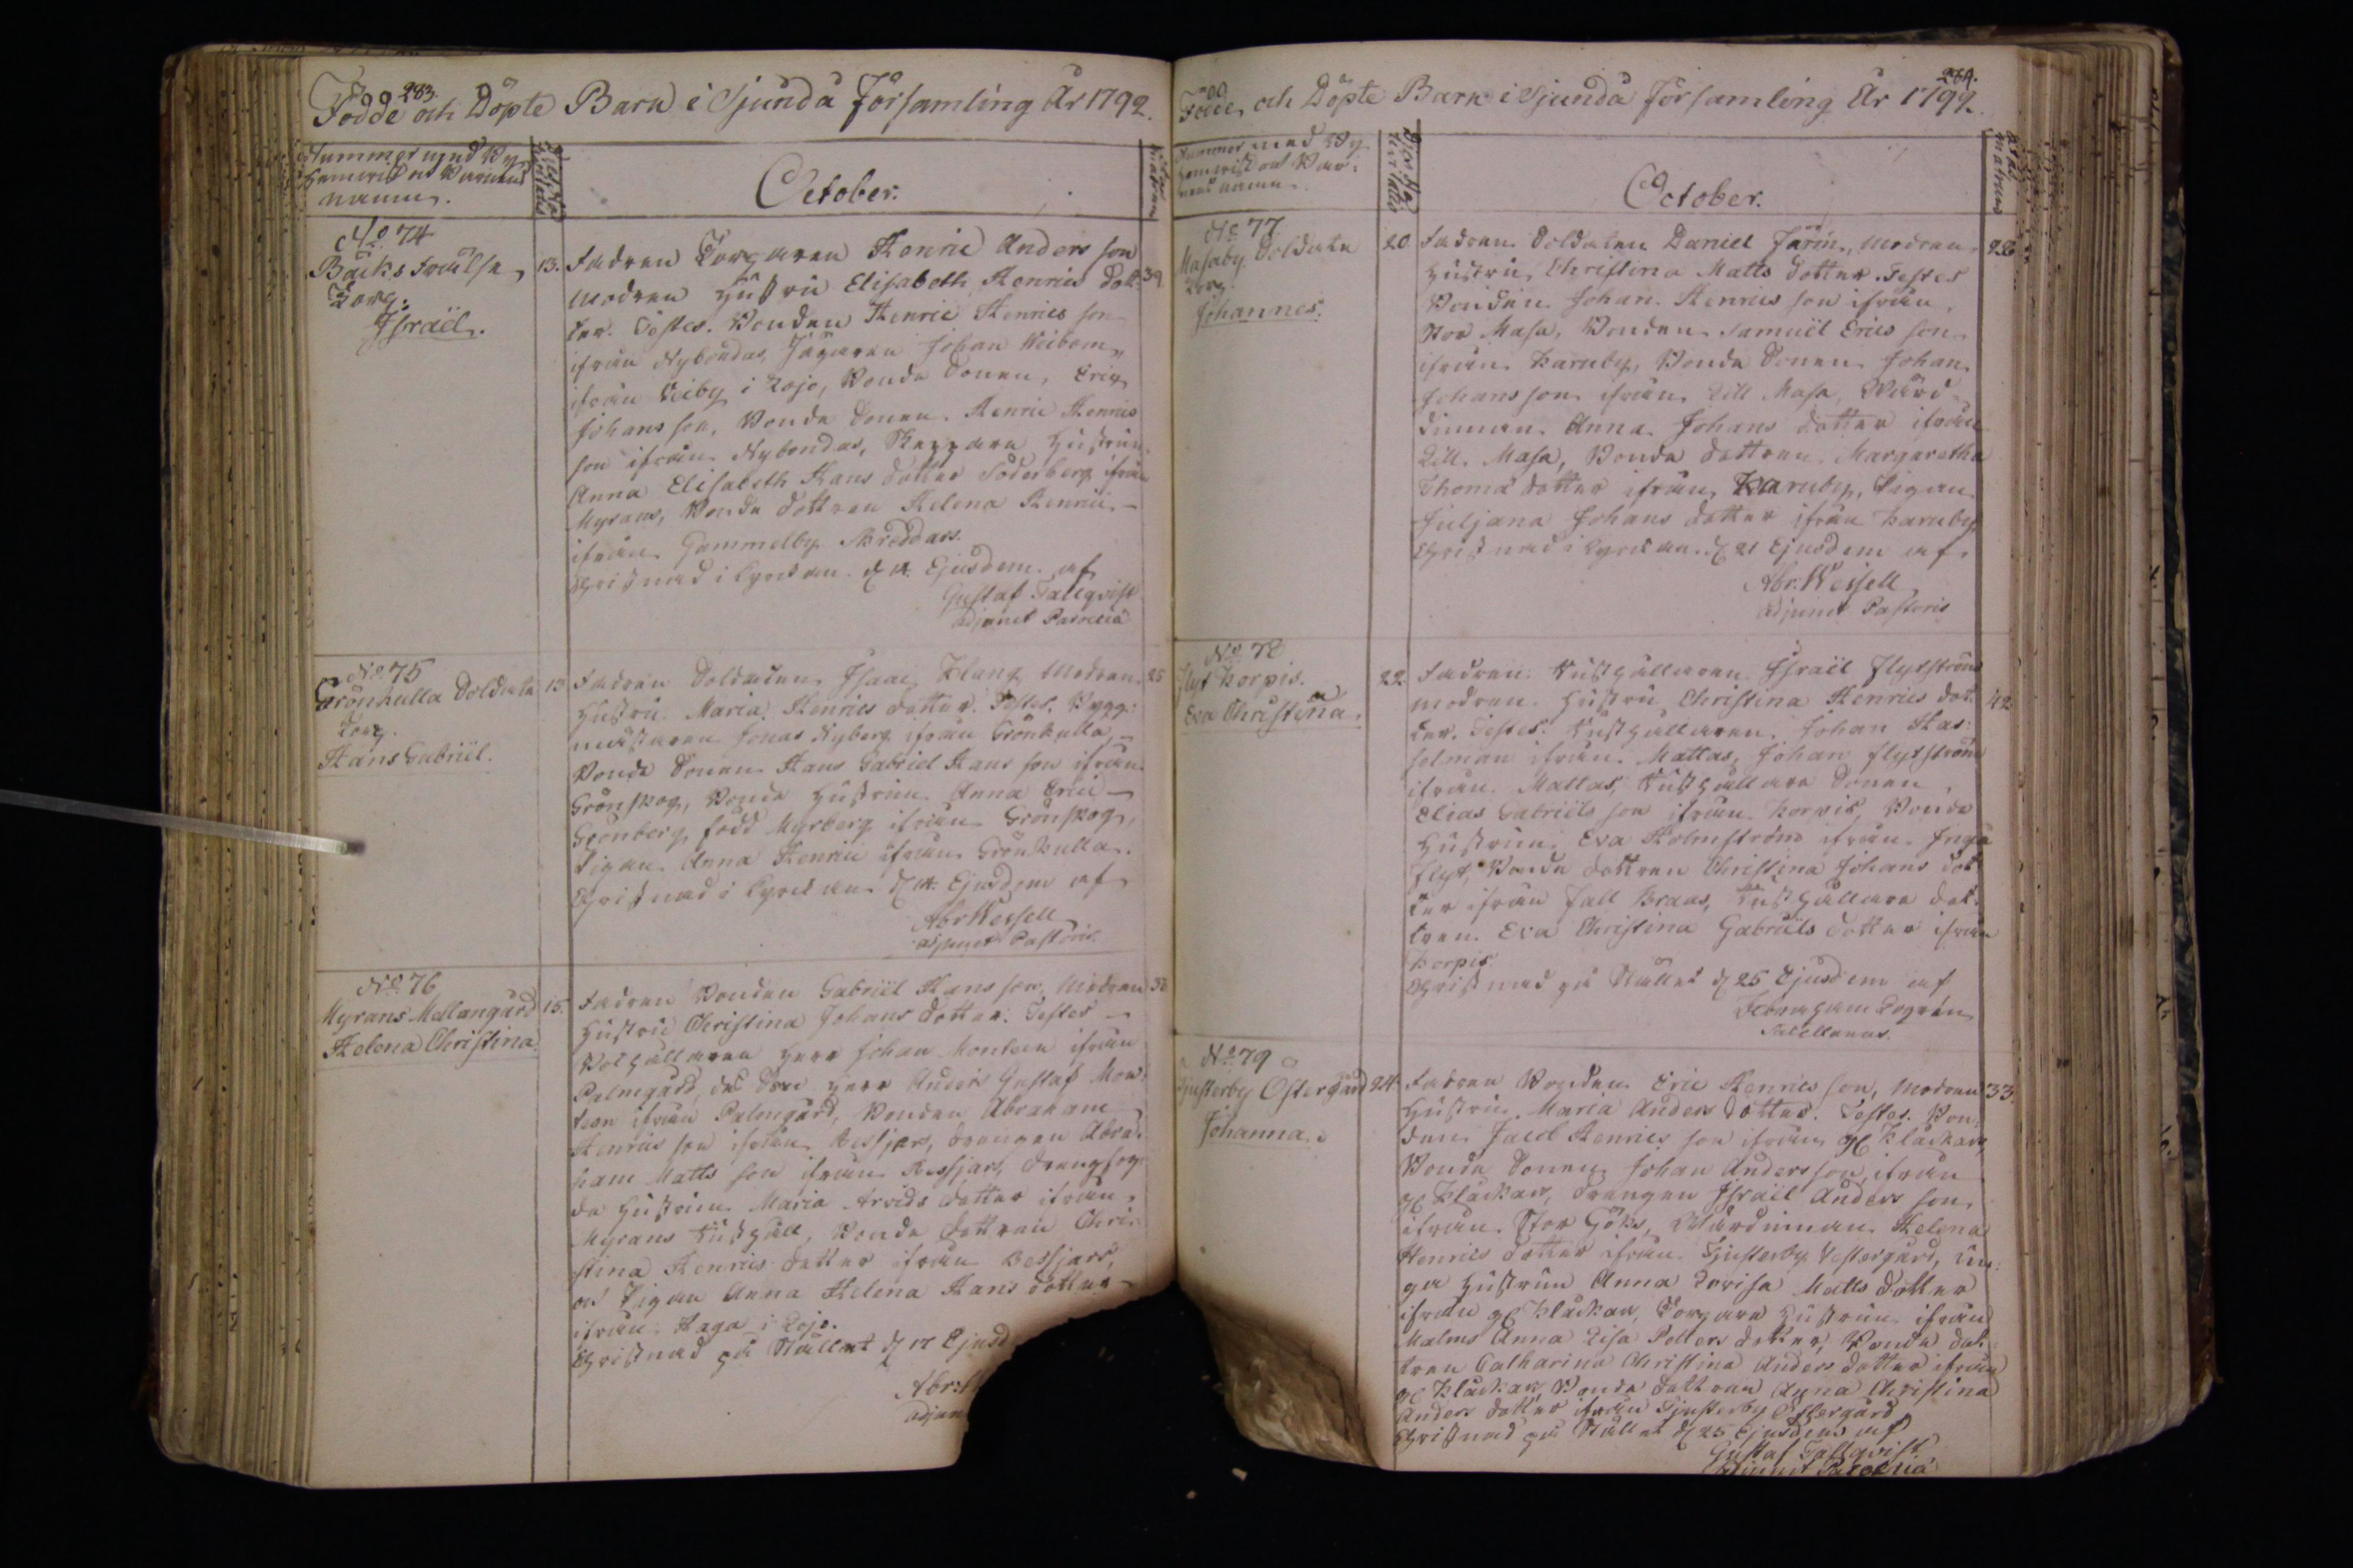 283.
Födde och Döpte Barn i Sjundå Församling År 1792.
Nummer med By
Hemvist och Barnens
namn.
October.
No 74
Bäcks Frälse
Torp.
Israël.
13.
Fadren Torparen Henric Anders son
Modren Hustru Elisabeth Henrics dot-
39
ter. Testes. Bonden Henric Henrics son
ifrån Nybondas, Jägaren Johan Wibom
ifrån Veiby i Lojo, Bonde Sonen, Eric
Johans son, Bonde Sonen Henric Henrics
son ifrån Nybondas, Hustrun
Anna Elisabeth Hans dotter Söderberg ifrån
Myrans, Bonde dottren Helena Henrici
ifrån Gammelby Skreddars.
Christnad i Kyrckan d 14. Ejusdem af
Gustaf Tallqvist
adjunct Paroecia
No 75
Grönkulla Soldate
Torp.
Hans Gabriël.
13
Fadren Soldaten Isaac Klang Modren
25
Hustru Maria Henrics dotter. Testes. Bygg-
mästaren Jonas Nyberg ifrån Grönkulla,
Bonde Sonen Hans Gabriel Hans son ifrån
Grönskog, Bonde Hustrun Anna Erici
Grönberg född Myrberg ifrån Grönskog,
Pigan Anna Henrici ifrån Grönkulla.
Christnad i Kyrckan d 14. Ejusdem af
Abr Wessell
adjunct Pastoris
No 76
Myrans Mellangård
Helena Christina.
15.
Fadren Bonden Gabriël Hans son, Modren
Hustru Christina Johans dotter. Testes
Bolhållaren Herr Johan Monteen ifrån
Palmgård, dess Son Herr Anders Gustaf Mon-
teen ifrån Palmgård, Bonden Abraham
Henrics son ifrån Bessjars, drengen Abra-
ham Matts son ifrån Bessjars, Drengfog-
de Hustrun Maria Arvids dotter ifrån
Myrans Rusthåll, Bonde dottren Chri-
stina Henrics dotter ifrån Bessjars,
och Pigan Anna Helena Hans dotter
ifrån Haga i Lojo.
Christnad på Stället d 17 Ejusd
Abr:
adjun
284.
Födde och Döpte Barn i Sjundå Församling År 1792.
Nummer med By
Hemvist och Bar-
nens namn.
October.
No 77
Masaby Soldate
Torp
Johannes.
20
Fadren Soldaten Daniel Färm, Modren
28
Hustru Christina Matts dotter. Testes
Bonden Johan Henrics son ifrån
Stor Masa, Bonden Samuël Erics son
ifrån Karuby, Bonde Sonen Johan
Johans son ifrån Lill Masa, Wärd-
dinnan Anna Johans dotter ifrån
Lill Masa, Bonde dottren Margaretha
Thomæ dotter ifrån Karuby, Pigan
Juliana Johans dotter ifrån Karuby
Christnad i Kyrckan d 21 Ejusdem af
Abr. Wessell
adjunct Pastoris
No 78
Flyt Korpis.
Eva Christina.
22
Fadren Rusthållaren Israël Flytström
modren Hustru Christina Henrics dot-
42
ter. Testes: Rusthållaren Johan Has-
selman ifrån Mattas, Johan Flytström
ifrån Mattas, Rusthållare Sonen
Elias Gabriëls son ifrån Korpis, Bonde
Hustrun Eva Holmström ifrån Inga
Flyt, Bonde dottren Christina Johans dot-
ter ifrån Fall Braas, Rusthållare dot-
tren Eva Christina Gabriëls dotter ifrån
Korpis
Christnad på Stället d 25 Ejusdem af
Abraham Logrén
Sacellanus.
No 79
Tjusterby Östergård
Johanna.
24
Fadren Bonden Eric Henrics son, Modren
33
Hustru Maria Anders dotter. Testes. Bon-
den Jacob Henrics son ifrån Klåckars,
Bonde Sonen Johan Anders son ifrån
Klåckars, drengen Israël Anders son
ifrån Stor Göks, Wärdinnan Helena
Henrics dotter ifrån Tjusterby Vestergård, un-
ga Hustrun Anna Lovisa Matts dotter
ifrån Klåckars, Torpare Hustrun ifrån
Malms Anna Lisa Petters dotter, Bonde dot-
tren Catharina Christina Anders dotter ifrån
Klåckars, Bonde dottren Anna Christina
Anders dotter ifrån Tjusterby Östergård
Christnad på Stället d 25 Ejusdem af
Gustaf Tallqvist
Adjunct Paroecia